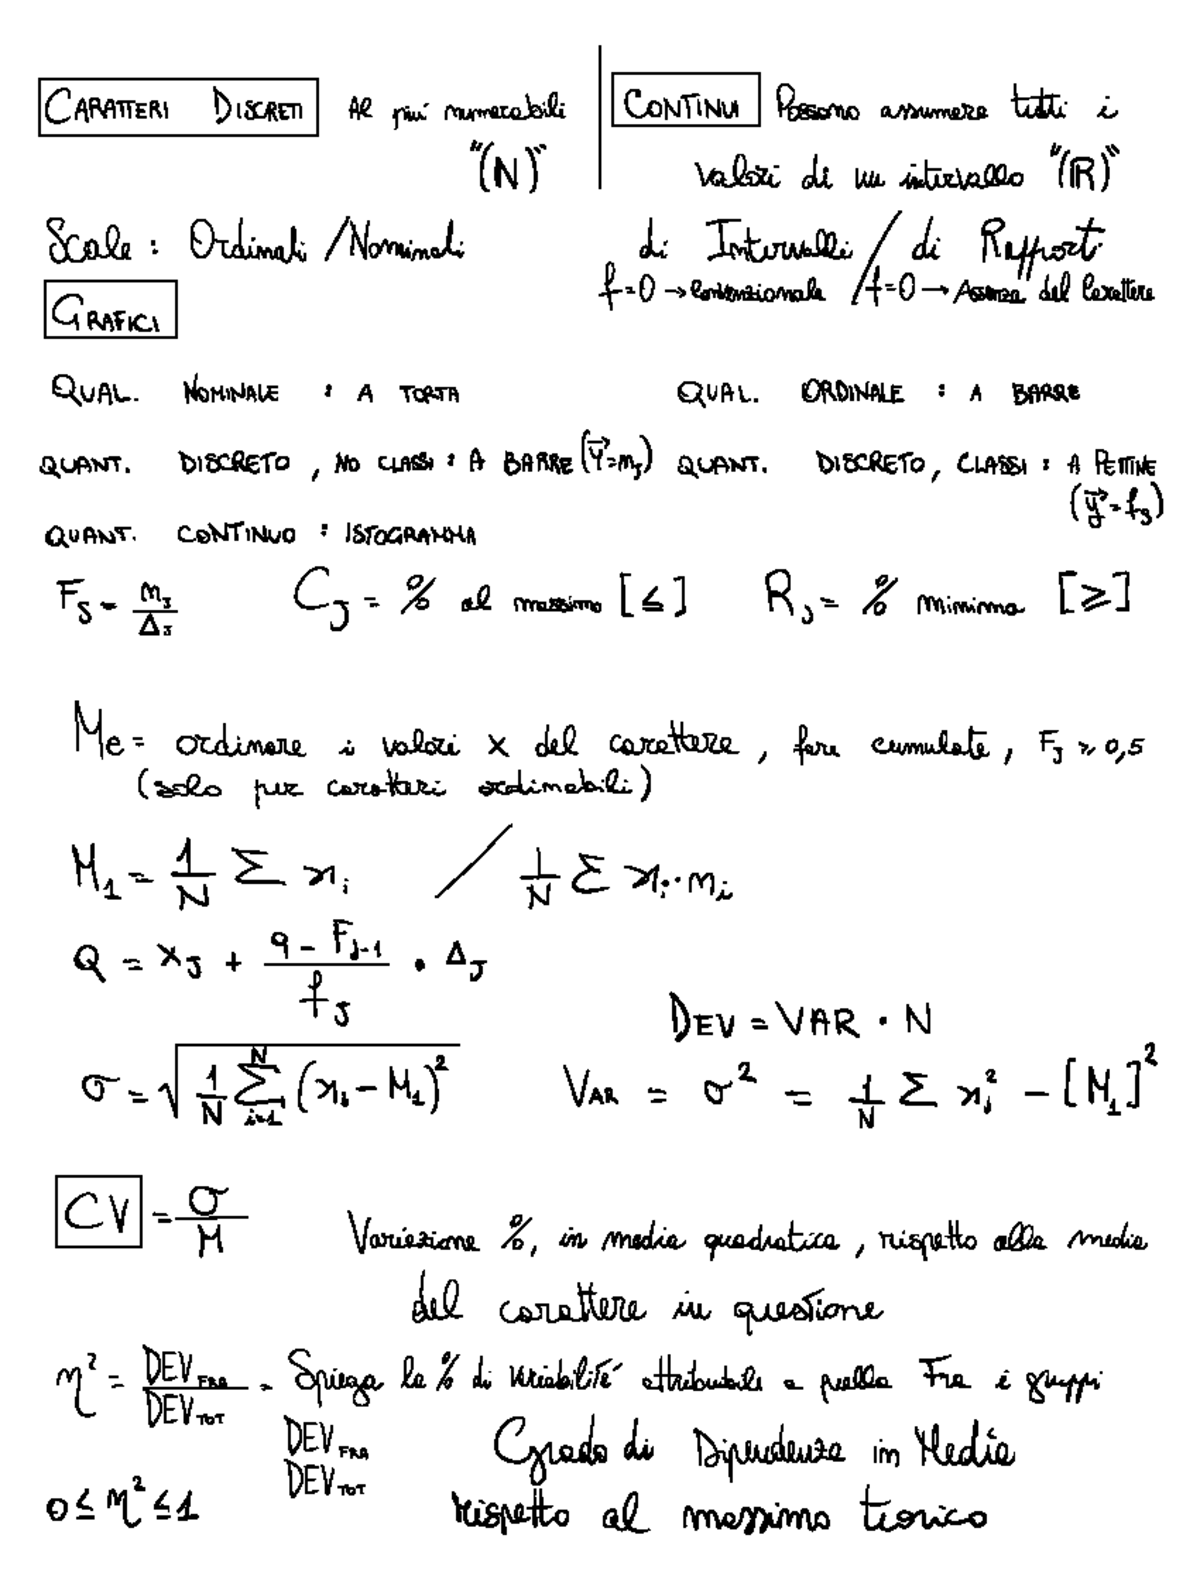 CARATTERI DISCRETI Al più numerabili "(N)"
CONTINUI Possono assumere tutti i
valori di un intervallo "(ℝ)"
Scale: Ordinali / Nominali
di Intervalli / di Rapporti
f=0 → Convenzionale / f=0 → Assenza del Carattere
GRAFICI
QUAL. NOMINALE : A TORTA
QUAL. ORDINALE : A BARRE
QUANT. DISCRETO, NO CLASSI : A BARRE (y⃗=nⱼ)
QUANT. DISCRETO, CLASSI : A PETTINE
(y⃗=fⱼ)
QUANT. CONTINUO : ISTOGRAMMA
Fⱼ = nⱼ/Δⱼ Cⱼ = % al massimo [≤] Rⱼ = % minimo [≥]
Me = ordinare i valori x del carattere, fare cumulate, Fⱼ ≥ 0,5
(solo per caratteri ordinabili)
M₁ = 1/N Σ xᵢ / 1/N Σ xᵢ·nᵢ
Q = xⱼ + (q - Fⱼ₋₁)/fⱼ · Δⱼ
DEV = VAR · N
σ = √(1/N Σᵢ₌₁ᴺ (xᵢ - M₁)²)
VAR = σ² = 1/N Σ xᵢ² - [M₁]²
CV = σ/M Variazione %, in media quadratica, rispetto alla media
del carattere in questione
η² = DEV FRA/DEV TOT = Spiega la % di variabilità attribuibile a quella Fra i gruppi
DEV FRA
DEV TOT
Grado di Dipendenza in Media
0 ≤ η² ≤ 1
rispetto al massimo teorico